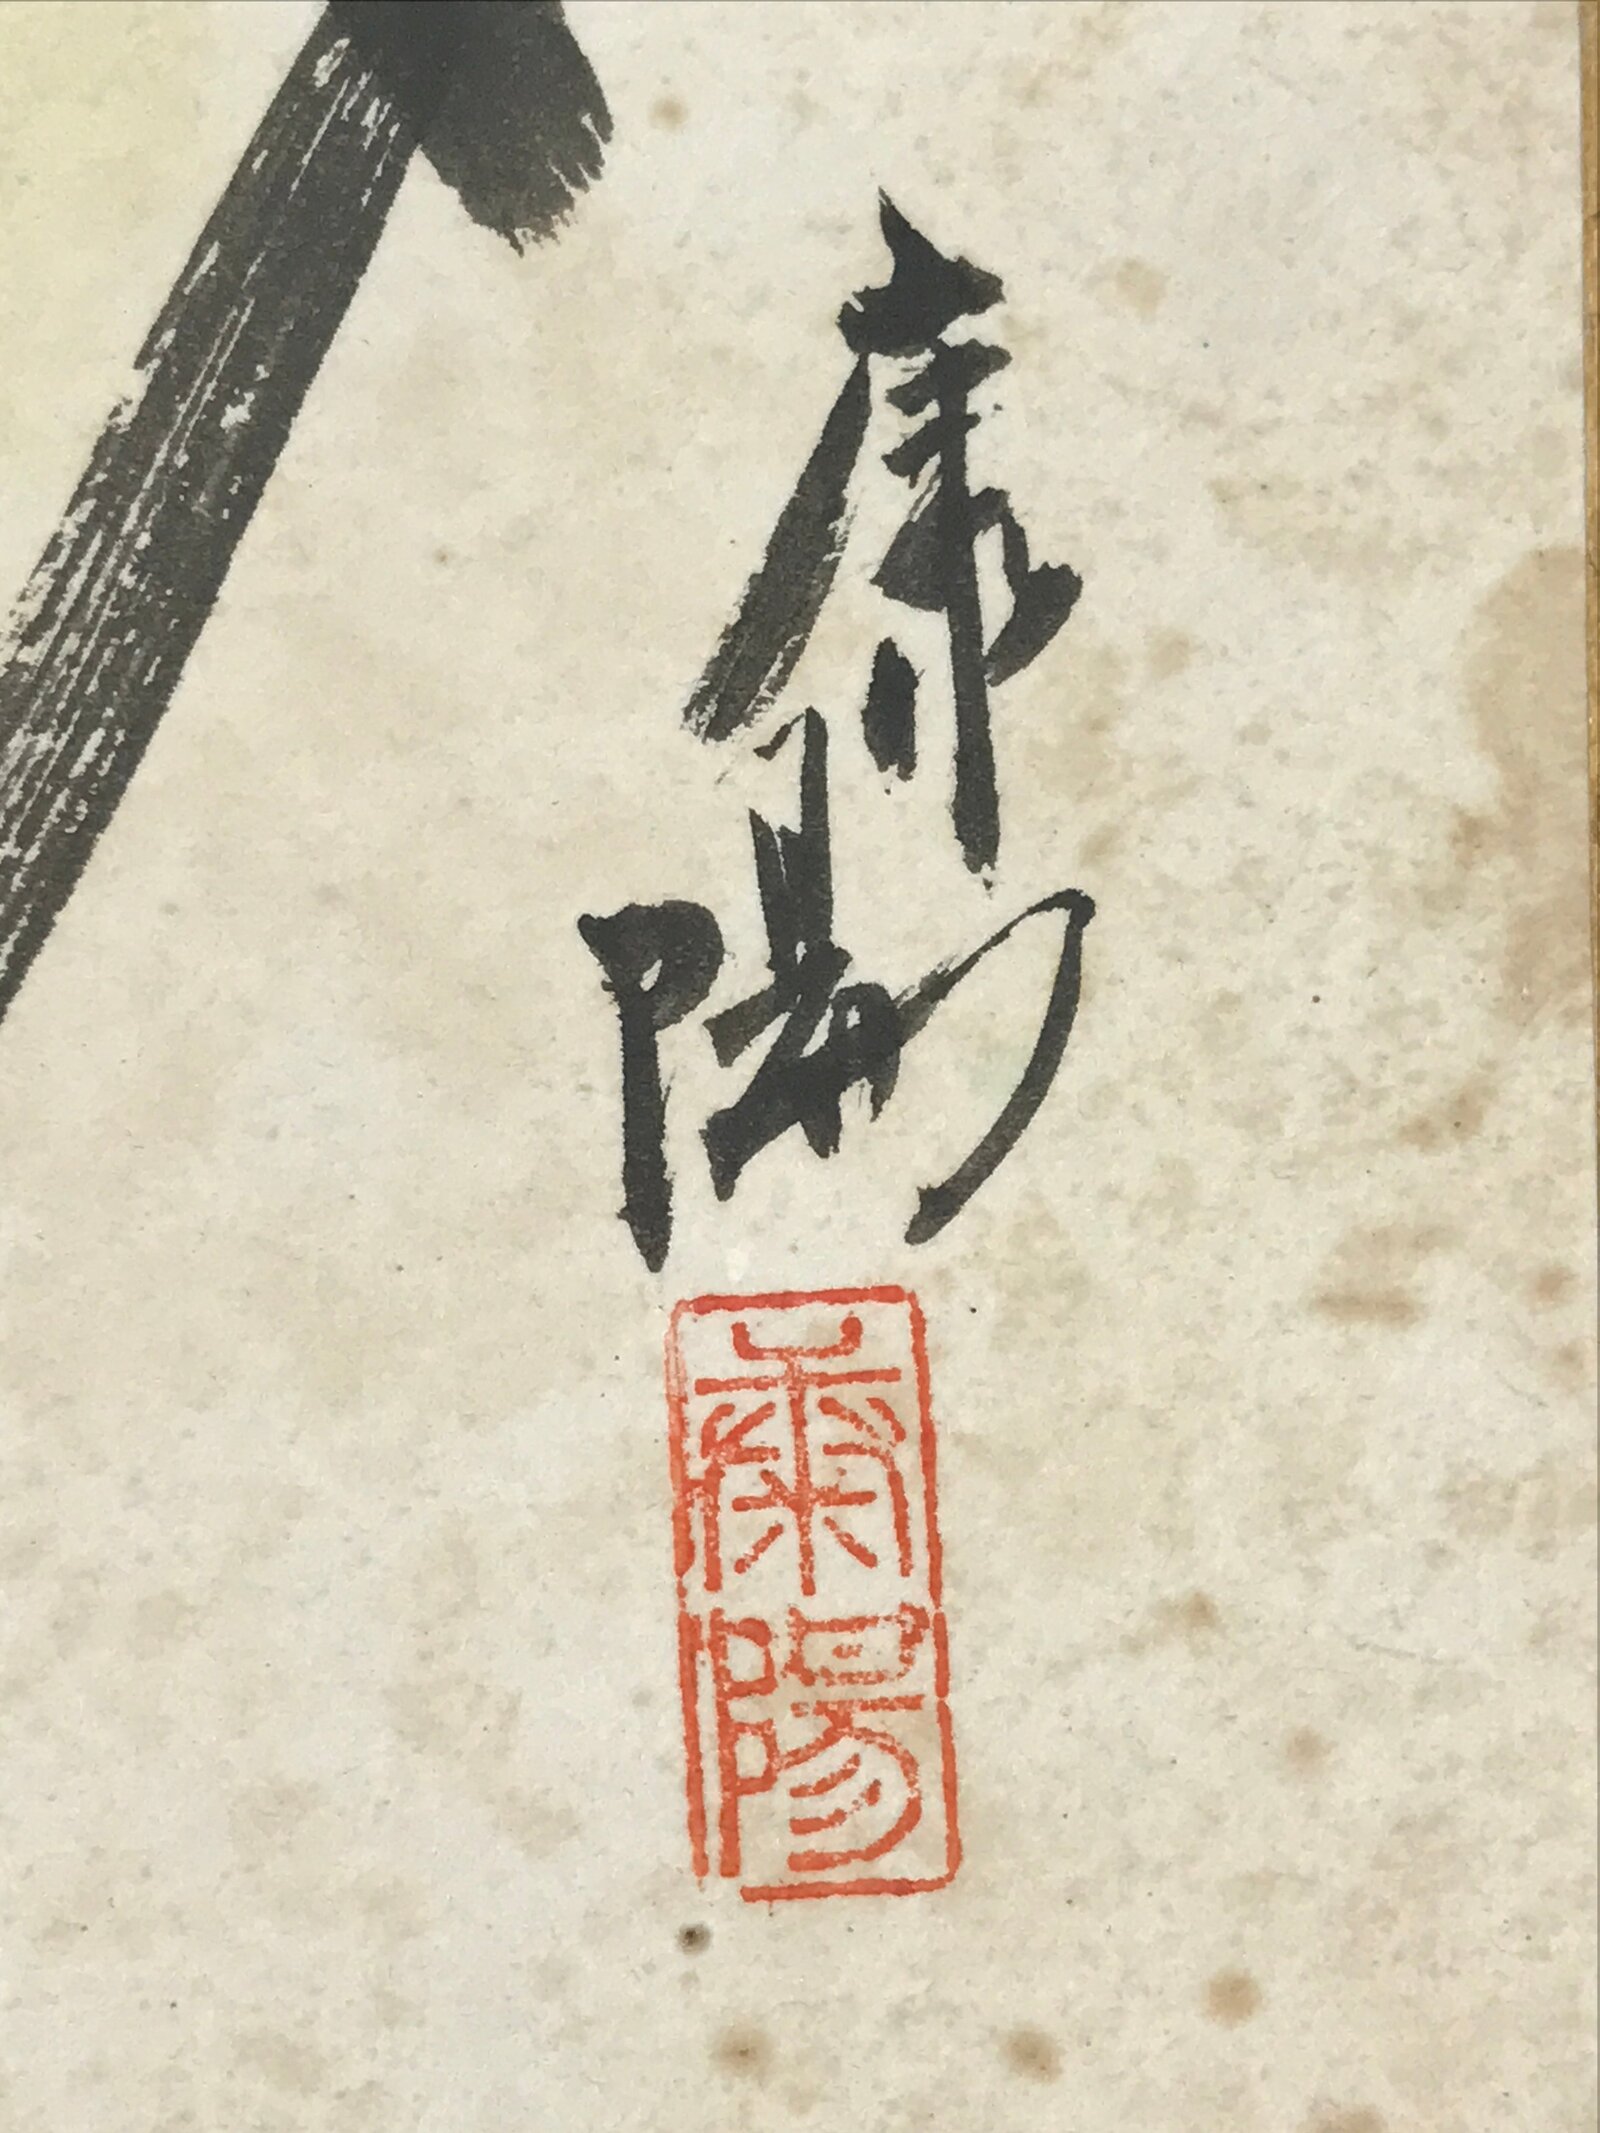 康陽
康陽